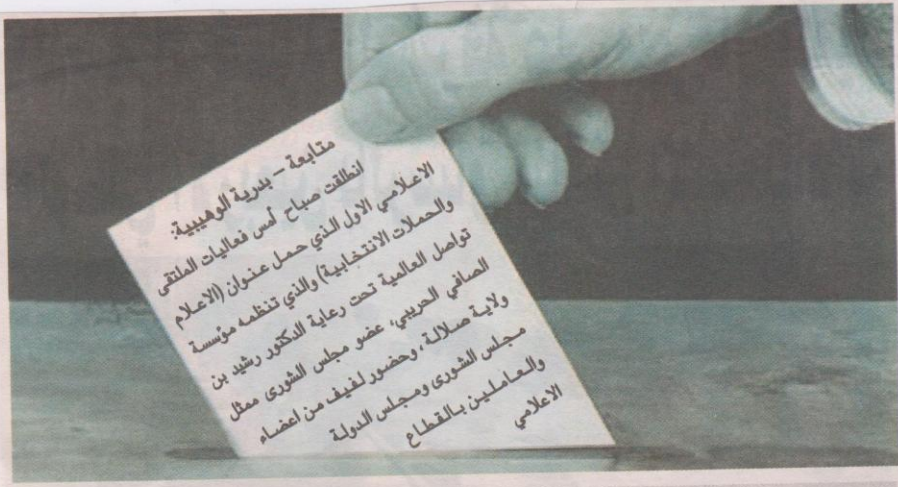 متابعة - بدرية الوهيبية:
انطلقت صباح أمس فعاليات الملتقى
الاعلامي الاول الذي حمل عنوان (الاعلام
والحملات الانتخابية) والذي تنظمه مؤسسة
تواصل العالمية تحت رعاية الدكتور رشيد بن
الصافي الحريبي، عضو مجلس الشورى ممثل
ولاية صلالة، وحضور لفيف من اعضاء
مجلس الشورى ومجلس الدولة
والعاملين بالقطاع
الاعلامي